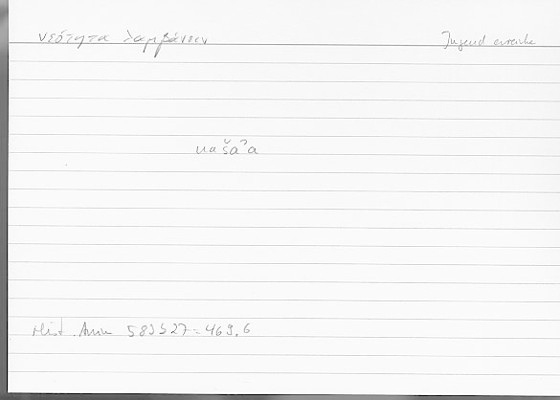 νεότητα λαμβάνειν Jugend erreiche
našaʾa
Hist. Anim 583 b 27 = 469,6